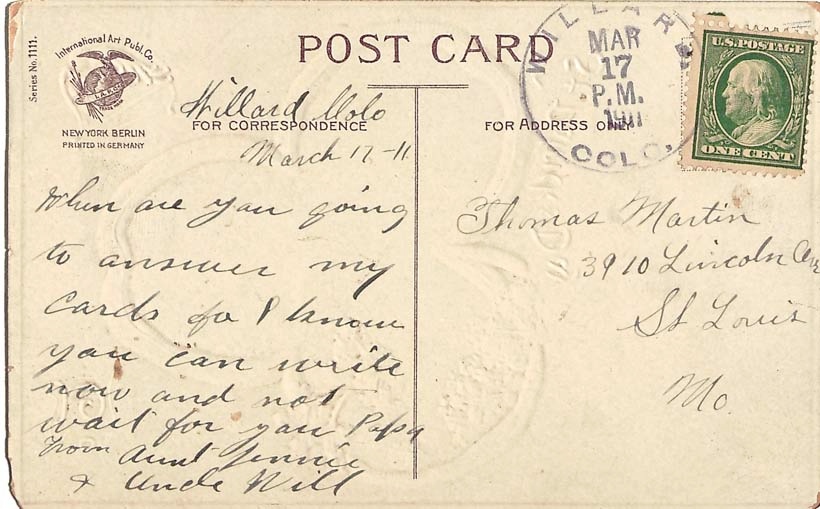 Series No. 1111.
International Art Publ. Co.
I.A.P.Co.
NEW YORK BERLIN
PRINTED IN GERMANY
POST CARD
WILLARD
MAR
17
P.M.
1911
COLO.
U.S. POSTAGE
ONE CENT
Willard Colo
FOR CORRESPONDENCE
FOR ADDRESS ONLY
March 17-11
When are you going
to answer my
cards for I know
you can write
now and not
wait for you Papa
From Aunt Jennie
& Uncle Will
Thomas Martin
3910 Lincoln Ave
St Louis
Mo.